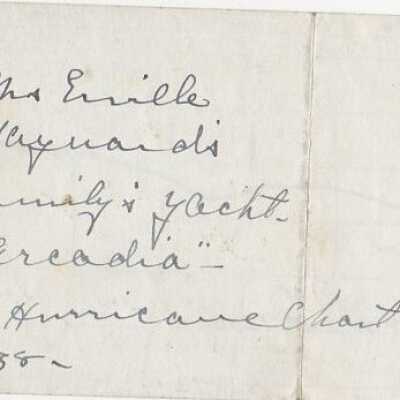 Mrs Enville
Maynard's
Family's yacht-
"Arcadia"-
Hurricane Chart
38-